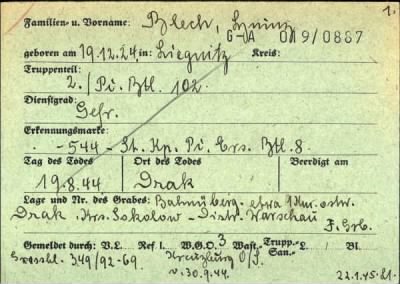 1.
Familien- u. Vorname: Blech,
G-A 019/0887
geboren am 19.12.24 in: Liegnitz Kreis:
Truppenteil:
2./Pi. Btl. 102.
Dienstgrad:
Gefr.
Erkennungsmarke:
-544- St. Kp. Pi. Ers. Btl. 8.
Tag des Todes Ort des Todes Beerdigt am
19.8.44 Drak
Lage und Nr. des Grabes: Bahnüberg. etwa 1 km. ostw.
Drak Krs. Sokolow - Distr. Warschau F. Grb.
Gemeldet durch: V.L. Ref L. W.G.O. 3 Wast.- Trupp.- San.- L. Bl.
349/92-69. Kreuzburg O/S.
v. 30.9.44. 22.1.45.